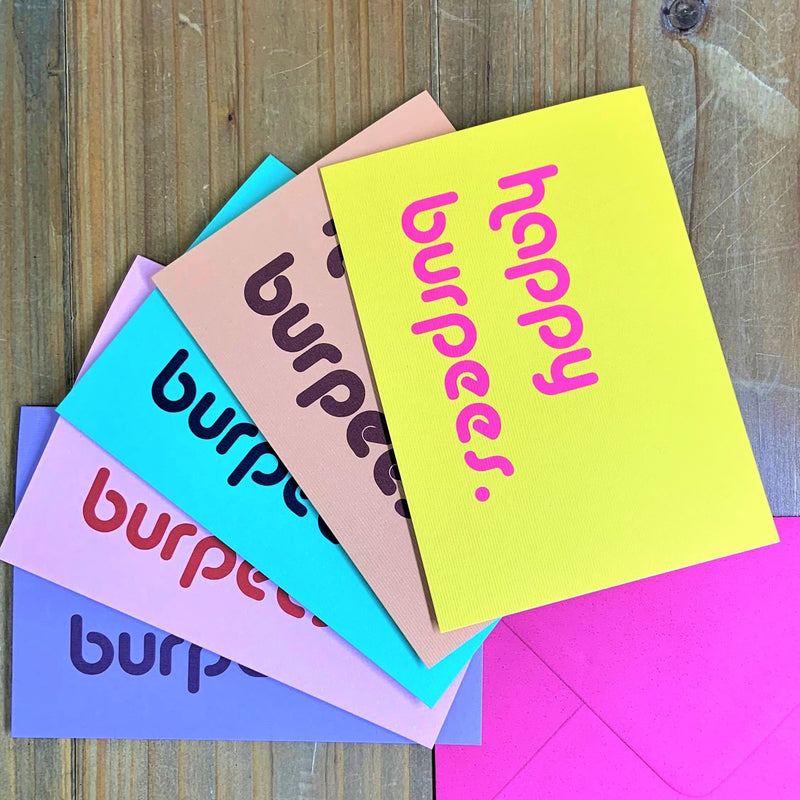 happy
burpees.
burpees
burpe
burpees
burpe